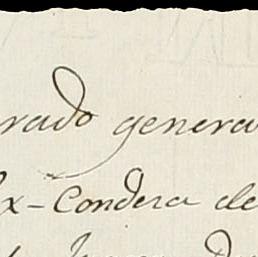 rado genera
x-Condesa de